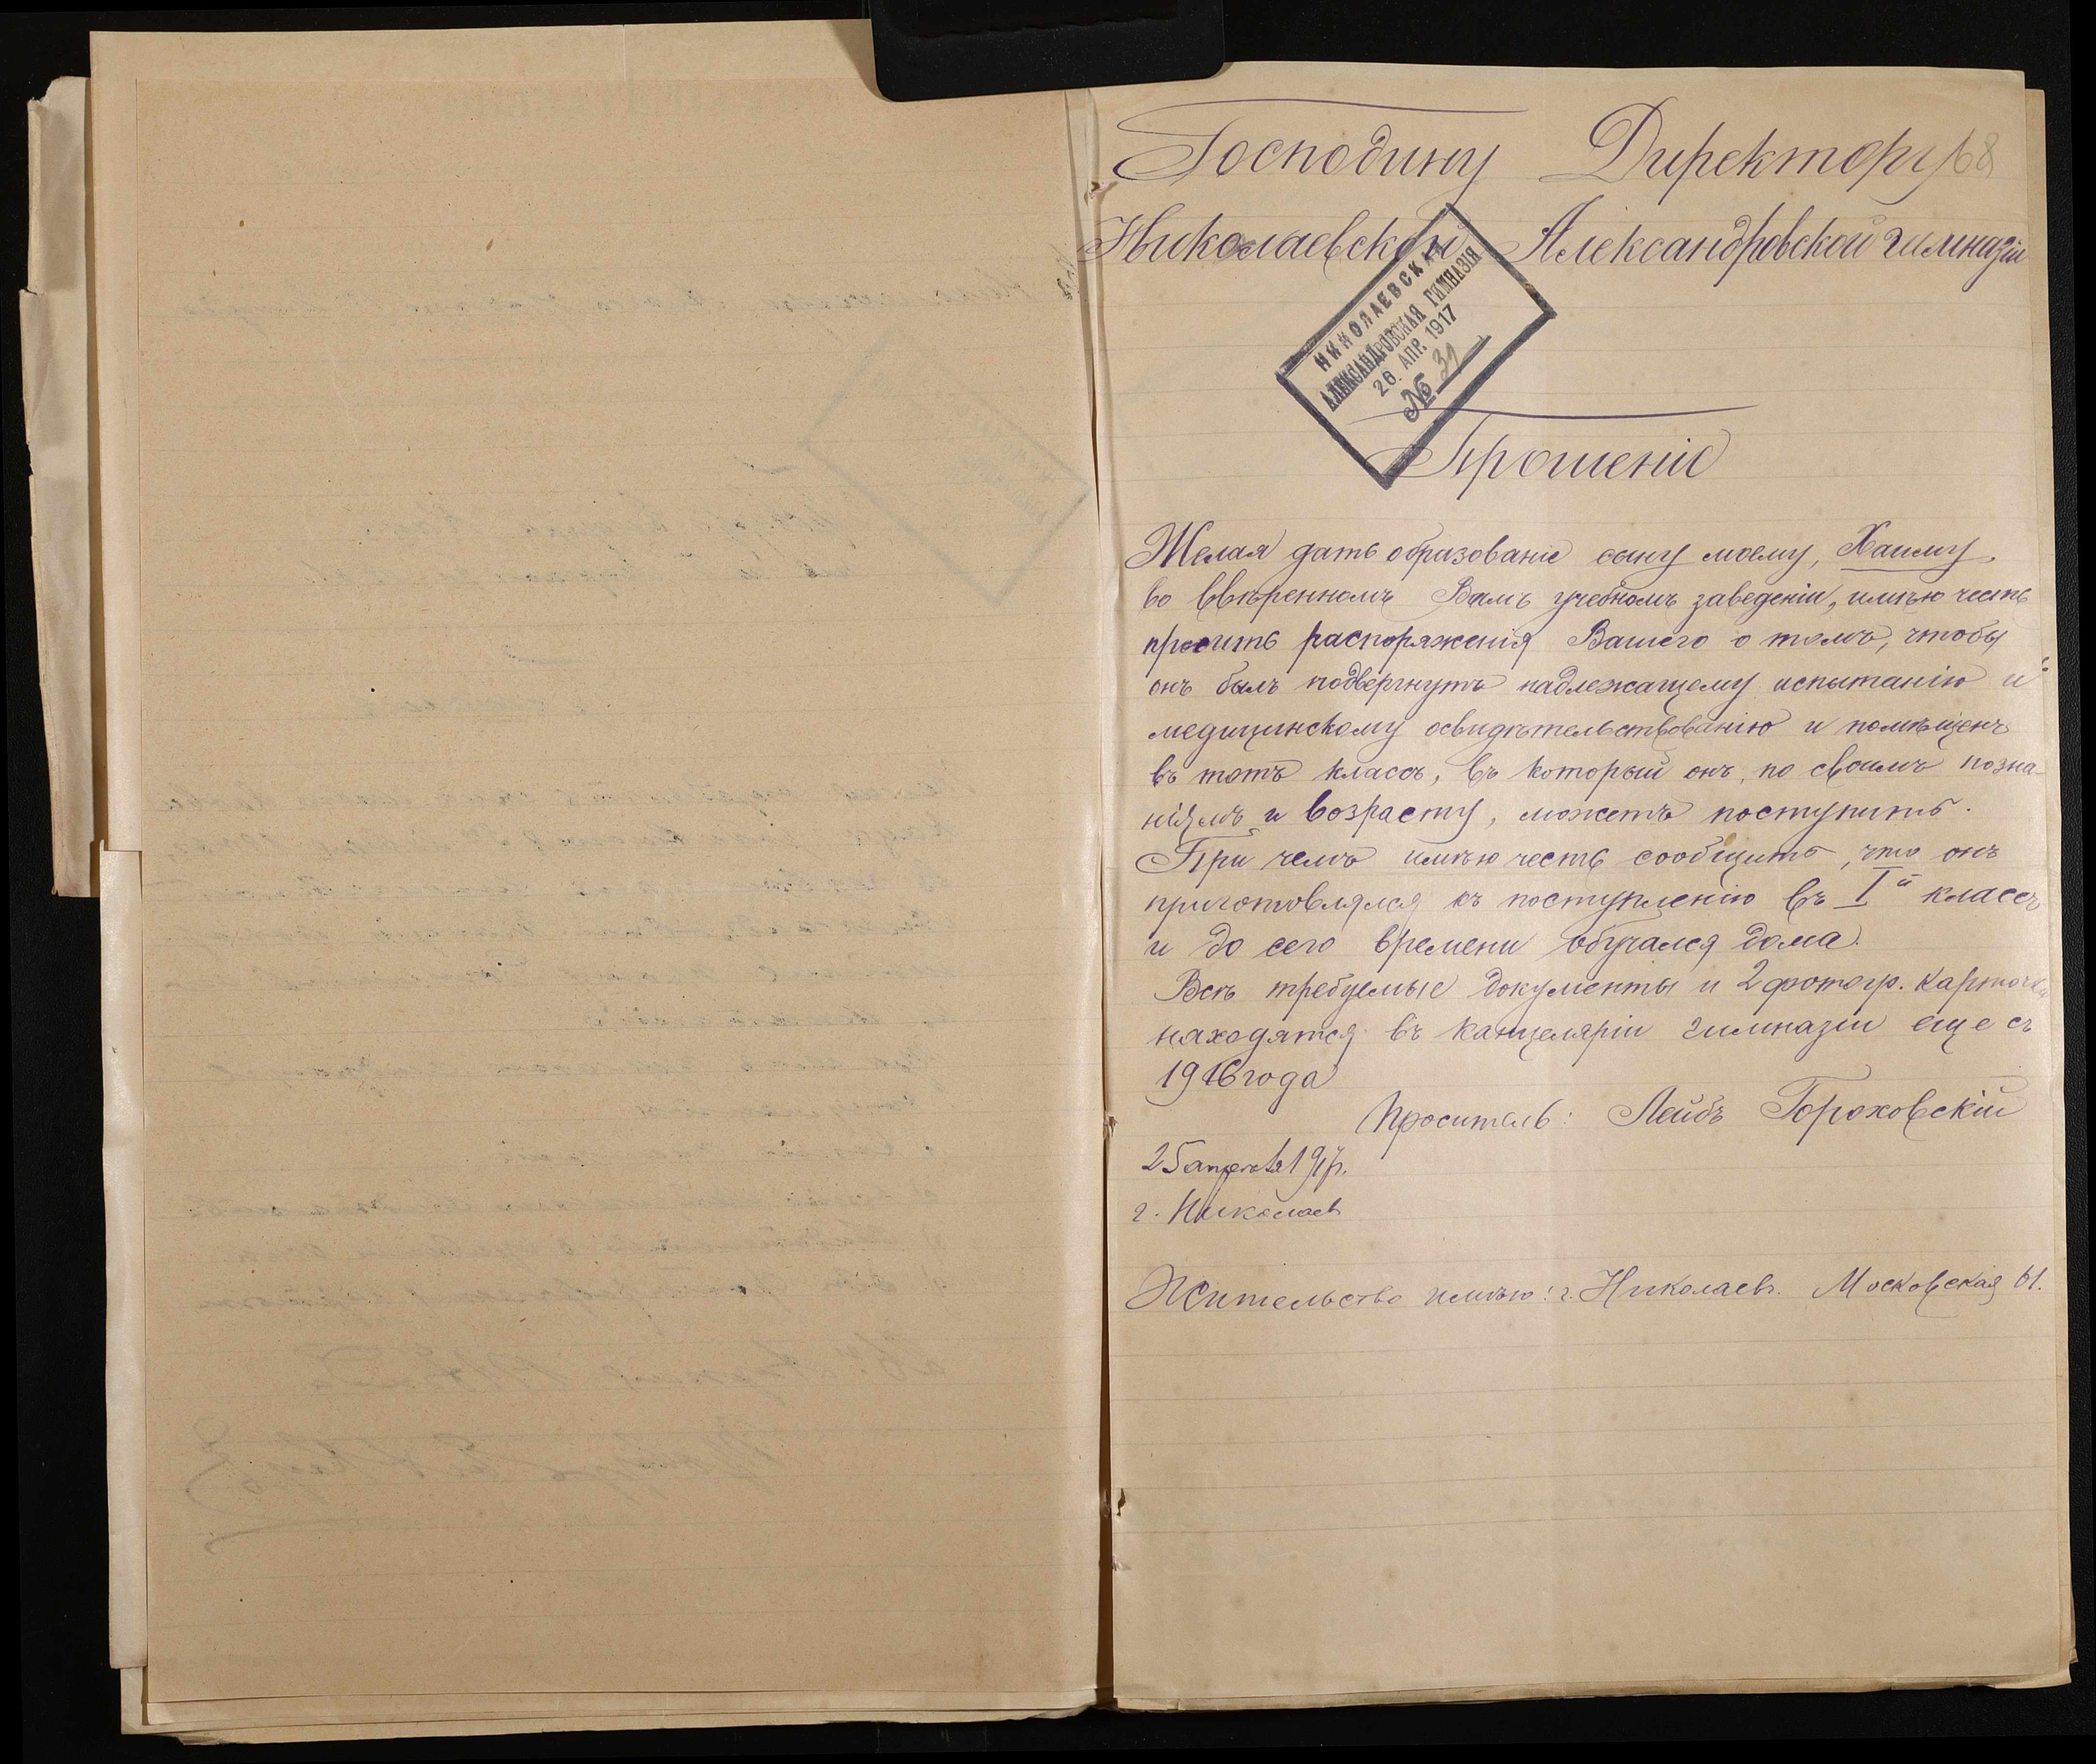 Господину Директору 68
Николаевской Александровской гимназіи
НИКОЛАЕВСКАЯ
АЛЕКСАНДРОВСКАЯ ГИМНАЗІЯ
26. АПР. 1917
№ 31
Прошеніе
Желая дать образованіе сыну моему, Хаиму,
во ввѣренномъ Вамъ учебномъ заведеніи, имѣю честь
просить распоряженія Вашего о томъ, чтобы
онъ былъ подвергнутъ надлежащему испытанію и
медицинскому освидѣтельствованію и помѣщенъ
въ тотъ классъ, въ который онъ, по своимъ позна-
ніямъ и возрасту, можетъ поступить.
При чемъ имѣю честь сообщить, что онъ
приготовлялся къ поступленію въ I й классъ
и до сего времени обучался дома.
Всѣ требуемые документы и 2 фотогр. карточки
находятся въ канцеляріи гимназіи еще съ
1916 года
Проситель: Лейбъ Гороховскій
25 апреля 1917г.
г. Николаев
Жительство имѣю: г. Николаевъ. Московская 61.